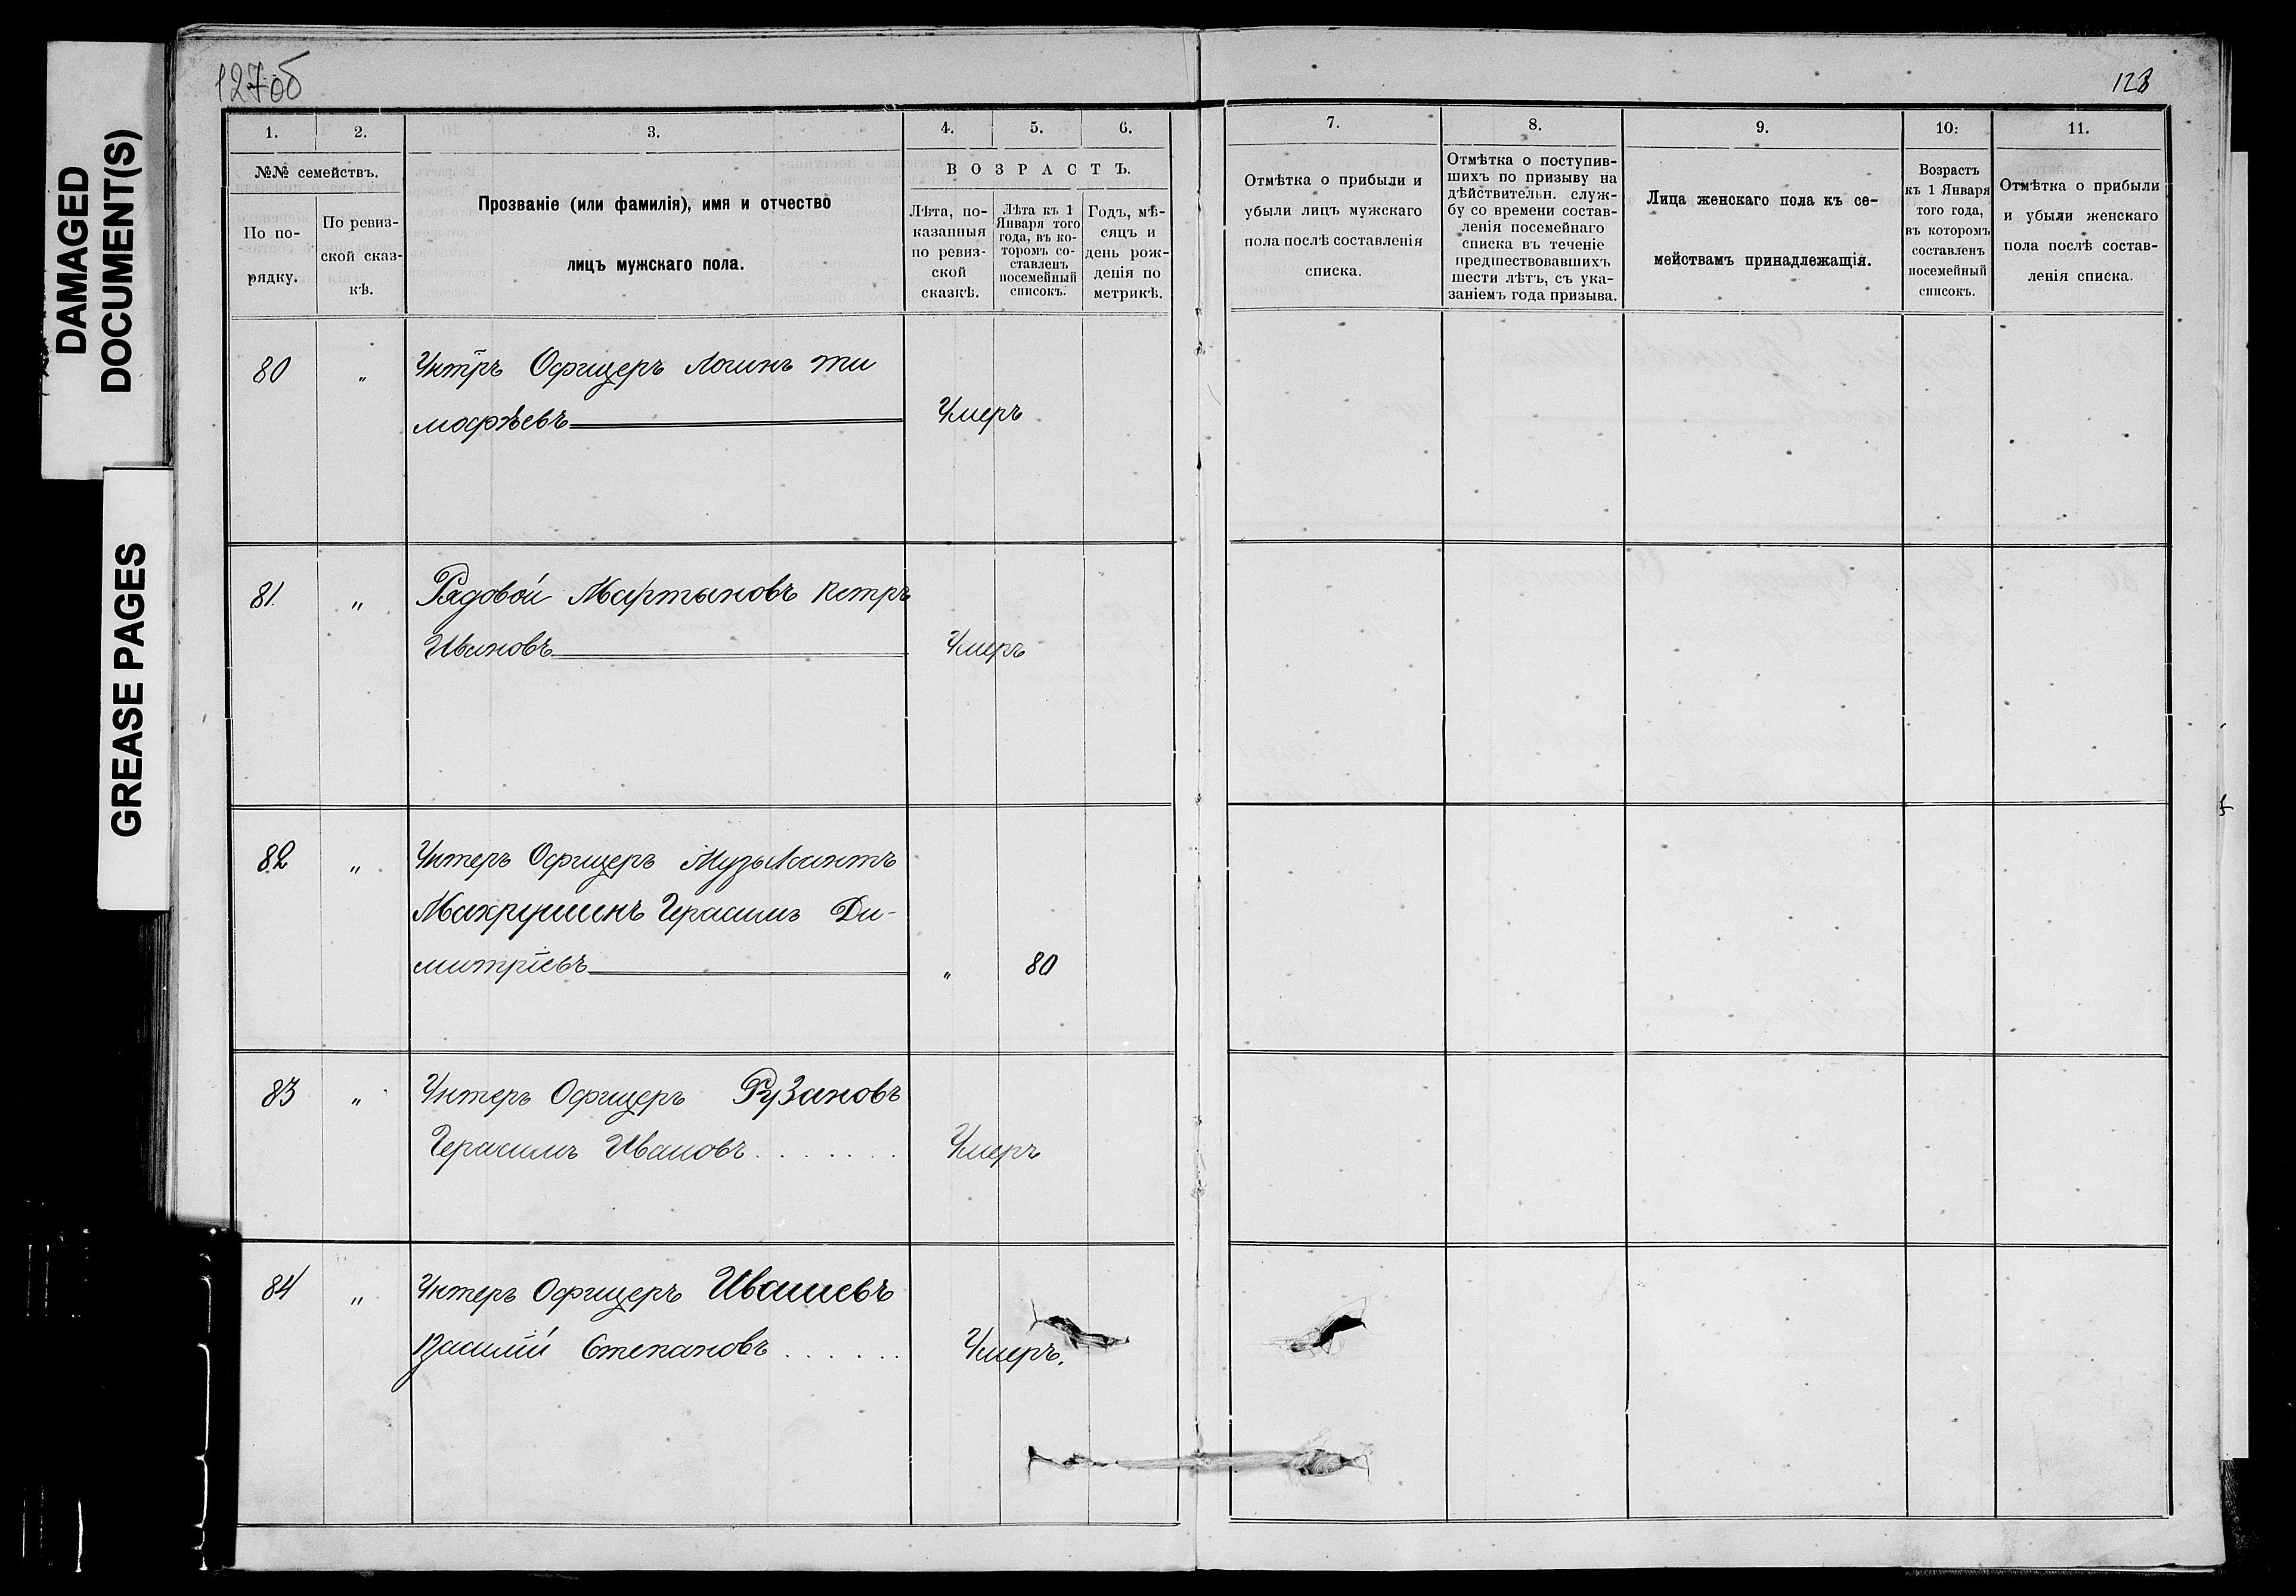 DAMAGED
DOCUMENT(S)
GREASE PAGES
127об
128
1.
2.
3.
4.
5.
6.
№№ семействъ.
По по-
рядку.
По ревиз-
ской сказ-
кѣ.
Прозваніе (или фамилія), имя и отчество
лицъ мужскаго пола.
ВОЗРАСТЪ.
Лѣта, по-
казанныя
по ревиз-
ской
сказкѣ.
Лѣта къ 1
Января того
года, въ ко-
торомъ со-
ставленъ
посемейный
списокъ.
Годъ, мѣ-
сяцъ и
день рож-
денія по
метрикѣ.
7.
8.
9.
10.
11.
Отмѣтка о прибыли и
убыли лицъ мужскаго
пола послѣ составленія
списка.
Отмѣтка о поступив-
шихъ по призыву на
дѣйствительн. служ-
бу со времени состав-
ленія посемейнаго
списка въ теченіе
предшествовавшихъ
шести лѣтъ, съ ука-
заніемъ года призыва.
Лица женскаго пола къ се-
мействамъ принадлежащія.
Возрастъ
къ 1 Января
того года,
въ которомъ
составленъ
посемейный
списокъ.
Отмѣтка о прибыли
и убыли женскаго
пола послѣ состав-
ленія списка.
80 " Унтръ Офицеръ Логинъ Ти
мофѣевъ Умеръ
81. " Рядовой Мартыновъ Петръ
Ивановъ Умеръ
82 " Унтеръ Офицеръ Музыкантъ
Махрушинъ Герасимъ Ди-
митріевъ " 80
83 " Унтеръ Офицеръ Рузановъ
Герасимъ Ивановъ Умеръ
84 " Унтеръ Офицеръ Ивашевъ
Василій Степановъ Умеръ.